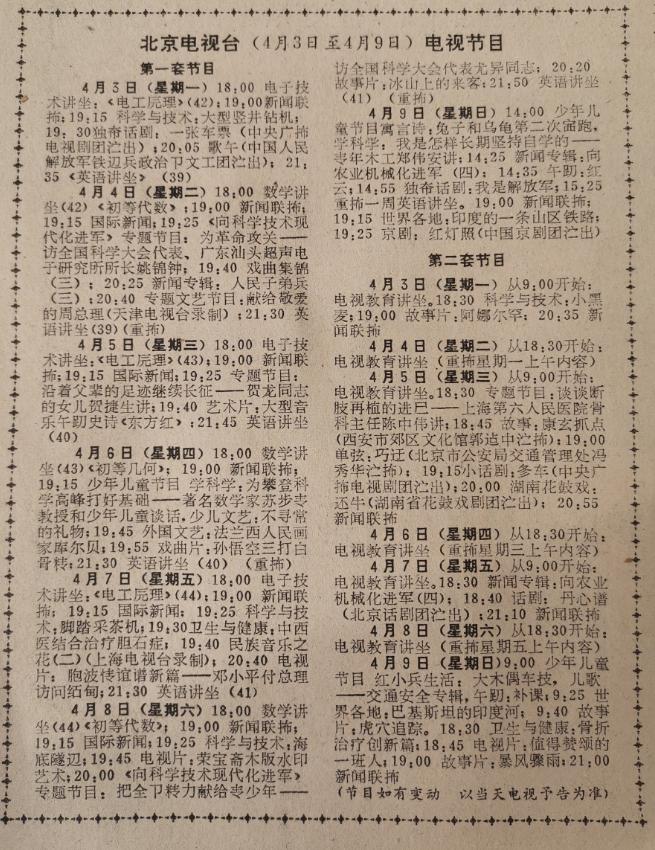 北京电视台（4月3日至4月9日）电视节目
第一套节目
4月3日（星期一）18:00 电子技
术讲坐:《电工原理》(42);19:00新闻联
播;19:15 科学与技术:大型竖井钻机;
19:30独奇话剧:一张车票（中央广播
电视剧团演出）;20:05 歌午(中国人民
解放军铁辺兵政治卫文工团演出）; 21:
35《英语讲坐》(39)
4月4日（星期二）18:00 数学讲
坐(42)《初等代数》;19:00 新闻联播;
19:15 国际新闻;19:25《向科学技术现
代化进军》专题节目：为革命攻关——
访全国科学大会代表、广东汕头超声电
子研究所所长姚锦钟；19:40 戏曲集锦
（三）；20:25 新闻专辑：人民子弟兵
（三）;20:40 专题文艺节目:献给敬爱
的周总理(天津电视台录制）;21:30 英
语讲坐(39)(重播)
4月5日（星期三）18:00 电子技
术讲坐:《电工原理》(43);19:00 新闻联
播;19:15 国际新闻;19:25 专题节目：
沿着父辈的足迹继续长征——贺龙同志
的女儿贺捷生讲;19:40 艺术片:大型音
乐午蹈史诗《东方红》;21:45 英语讲坐
(40)
4月6日（星期四）18:00 数学讲
坐(43)《初等几何》；19:00 新闻联播；
19:15 少年儿童节目 学科学：为攀登科
学高峰打好基础——著名数学家苏步青
教授和少年儿童谈话，少儿文艺:不寻常
的礼物;19:45 外国文艺:法兰西人民画
家库尔贝;19:55 戏曲片:孙悟空三打白
骨精;21:30 英语讲坐（40）（重播）
4月7日（星期五）18:00 电子技
术讲坐:《电工原理》(44);19:00 新闻联
播；19:15 国际新闻；19:25 科学与技
术:脚踏采茶机;19:30卫生与健康:中西
医结合治疗胆石症；19:40 民族音乐之
花(二)(上海电视台录制)；20:40 电视
片：胞波传谊谱新篇——邓小平付总理
访问缅甸;21:30 英语讲坐（41）
4月8日（星期六）18:00 数学讲
坐(44)《初等代数》；19:00 新闻联播；
19:15 国际新闻;19:25 科学与技术:海
底隧辺;19:45 电视片:荣宝斋木版水印
艺术;20:00《向科学技术现代化进军》
专题节目：把全卩精力献给青少年——
访全国科学大会代表尤异同志；20:20
故事片:冰山上的来客;21:50 英语讲坐
(41)（重播）
4月9日（星期日）14:00 少年儿
童节目寓言诗:兔子和乌龟第二次赛跑,
学科学：我是怎样长期坚持自学的——
青年木工郑伟安讲;14:25 新闻专辑:向
农业机械化进军（四）；14:35 午蹈:红
云;14:55 独奇话剧:我是解放军;15:25
重播一周英语讲坐。19:00 新闻联播；
19:15 世界各地:印度的一条山区铁路;
19:25 京剧：红灯照(中国京剧团演出)
第二套节目
4月3日（星期一）从9:00开始:
电视教育讲坐。18:30 科学与技术:小黑
麦;19:00 故事片:阿娜尔罕；20:35 新
闻联播
4月4日（星期二）从18:30开始:
电视教育讲坐（重播星期一上午内容）
4月5日（星期三）从9:00开始:
电视教育讲坐。18:30 专题节目:谈谈断
肢再植的进展——上海第六人民医院骨
科主任陈中伟讲;18:45 故事:康玄抓点
(西安市郊区文化馆郭逌中演播);19:00
单弦:巧迁(北京市公安局交通管理处冯
秀华演播)；19:15小话剧:多车(中央广
播电视剧团演出);20:00 湖南花鼓戏：
还牛(湖南省花鼓戏剧团演出)；20:55
新闻联播
4月6日（星期四）从18:30开始:
电视教育讲坐（重播星期三上午内容）
4月7日（星期五）从9:00开始:
电视教育讲坐。18:30 新闻专辑:向农业
机械化进军(四)；18:40 话剧：丹心谱
(北京话剧团演出)；21:10 新闻联播
4月8日（星期六）从18:30开始:
电视教育讲坐（重播星期五上午内容）
4月9日（星期日)9:00 少年儿童
节目 红小兵生活：大木偶车技，儿歌
——交通安全专辑，午蹈:补课;9:25 世
界各地:巴基斯坦的印度河；9:40 故事
片:虎穴追踪。18:30 卫生与健康:骨折
治疗创新篇;18:45 电视片:值得赞颂的
一班人;19:00 故事片:暴风骤雨;21:00
新闻联播
(节目如有变动 以当天电视予告为准)